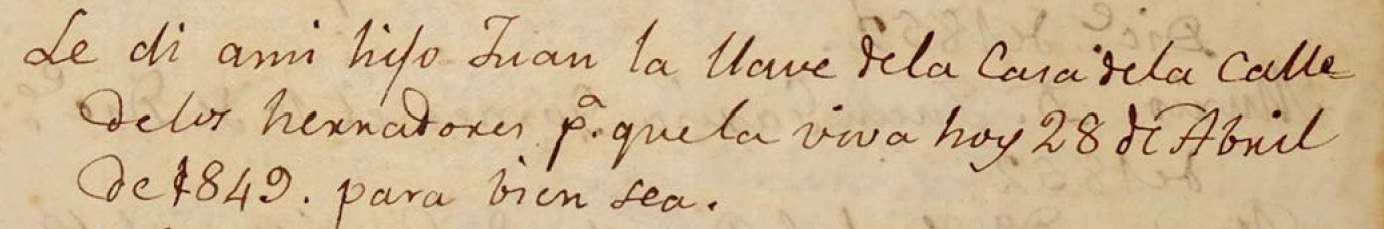 Le di ami hijo Juan la llave dela Casa dela Calle
delos herradores pª. que la viva hoy 28 de Abril
de 1849. para bien sea.